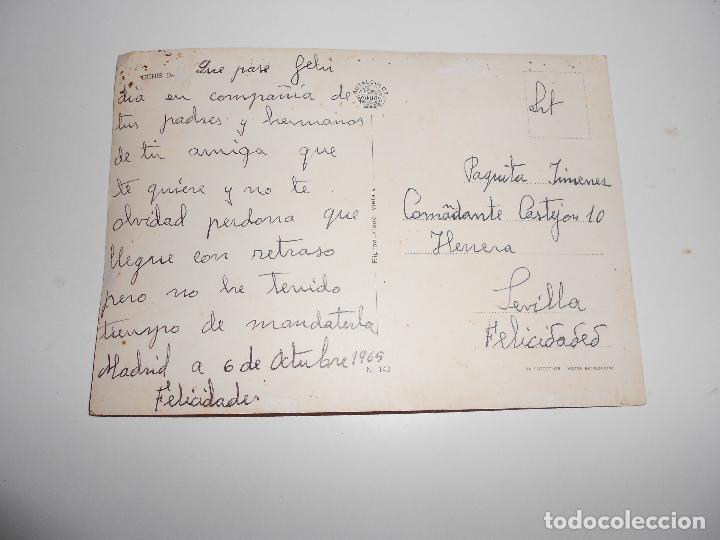 Que pase feliz
dia en compañia de
tus padres y hermanos
de tu amiga que
te quiere y no te
olvidad perdona que
llegue con retraso
pero no he tenido
tiempo de mandaterla
Madrid a 6 de Octubre 1965
Felicidades
N. 143
Srt
Paquita Jimenez
Comandante Castejon 10
Herrera
Sevilla
Felicidades
todocoleccion.net